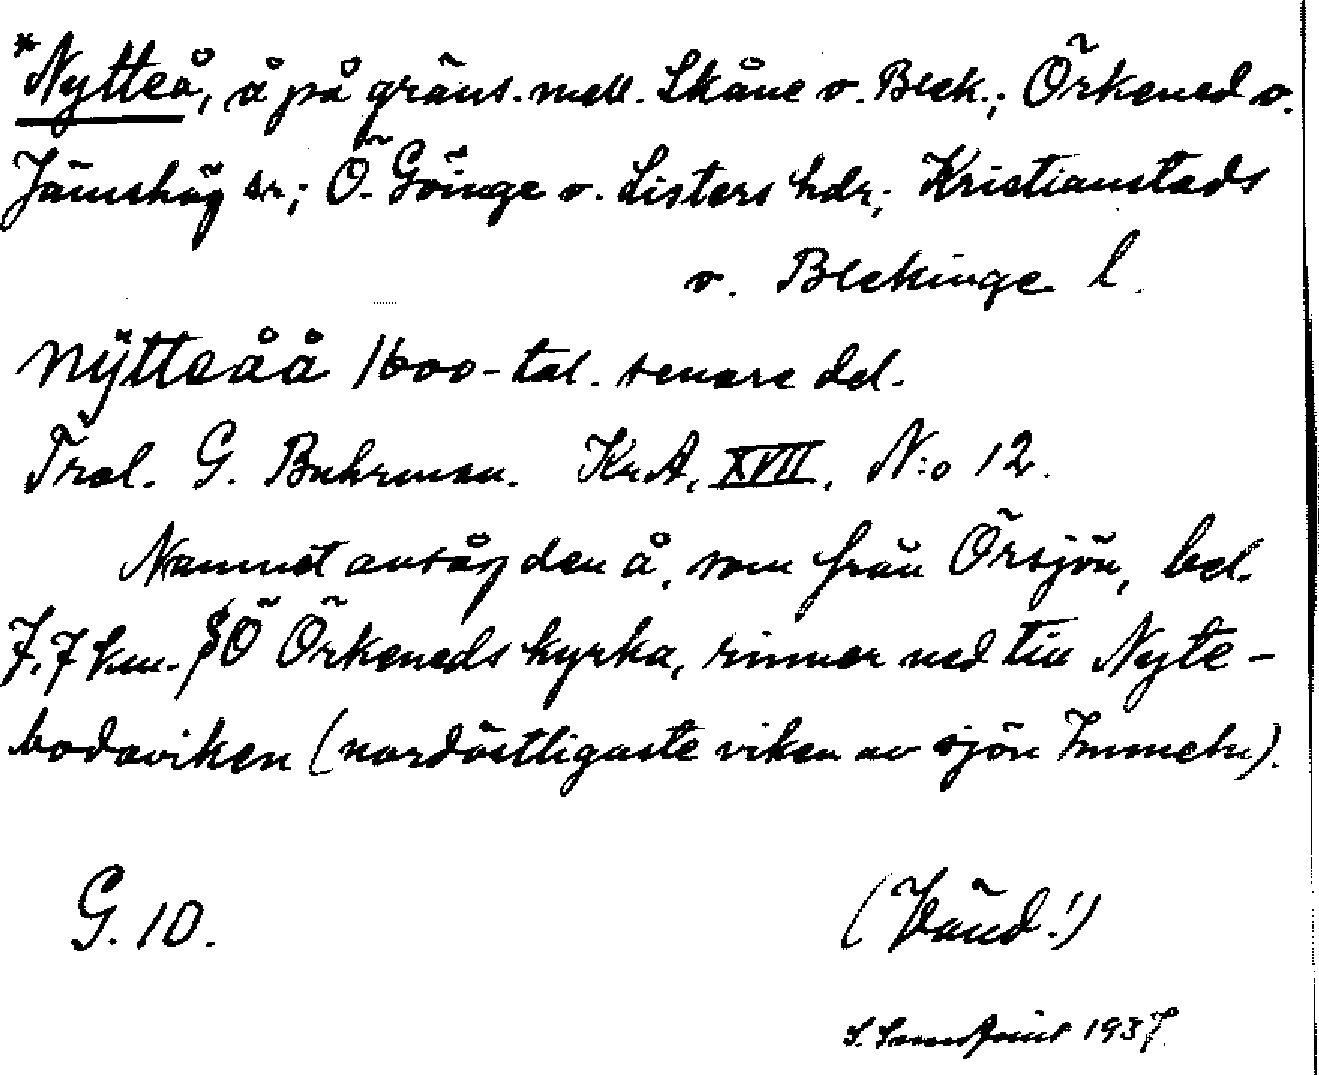 *Nytteå, å på gräns. mell. Skåne o. Blek.; Örkened o.
Jämshög sn; Ö. Göinge o. Listers hdr; Kristianstads
o. Blekinge l.
Nÿtteåå 1600-tal. senare del.
Trol. G. Buhrman. Kr.A, XVII, N:o 12.
Namnet avsåg den å, som från Örsjön, bel.
7,7 km. SÖ Örkeneds kyrka, rinner ned till Nyte-
bodaviken (nordöstligaste viken av sjön Immeln).
G. 10.
(Vänd!)
1937